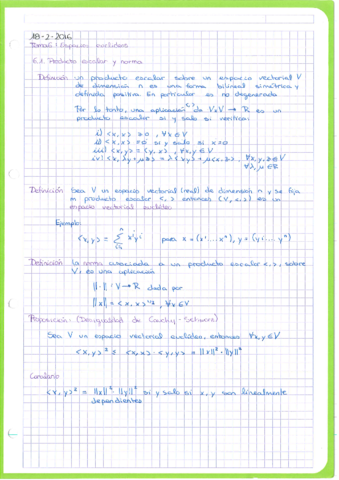 18-2-2016
Tema 6: Espacios euclídeos
6.1. Producto escalar y norma
Definición un producto escalar sobre un espacio vectorial V
de dimensión n es una forma bilineal simétrica y
definida positiva. En particular es no degenerada
Por lo tanto, una aplicación <,> de V×V → R es un
producto escalar si y solo si verifica:
i) <x, x> ≥ 0, ∀x ∈ V
ii) <x, x> = 0 si y solo si x = 0
iii) <x, y> = <y, x>, ∀x, y ∈ V
iv) <x, λy + μz> = λ<x, y> + μ<x, z>, ∀x, y, z ∈ V
∀λ, μ ∈ R
Definición Sea V un espacio vectorial (real) de dimensión n y se fija
un producto escalar <,> entonces (V, <,>) es un
espacio vectorial euclídeo.
Ejemplo:
<x, y> = ∑ x^i y^i para x = (x^1 ... x^n), y = (y^1 ... y^n)
Definición la norma asociada a un producto escalar <,>, sobre
V; es una aplicación
||·||: V → R dada por
||x|| = <x, x>^1/2, ∀x ∈ V
Proposición (Desigualdad de Cauchy-Schwarz)
Sea V un espacio vectorial euclídeo, entonces ∀x, y ∈ V
<x, y>² ≤ <x, x> · <y, y> = ||x||² · ||y||²
Corolario
<x, y>² = ||x||² ||y||² si y solo si x, y son linealmente
dependientes